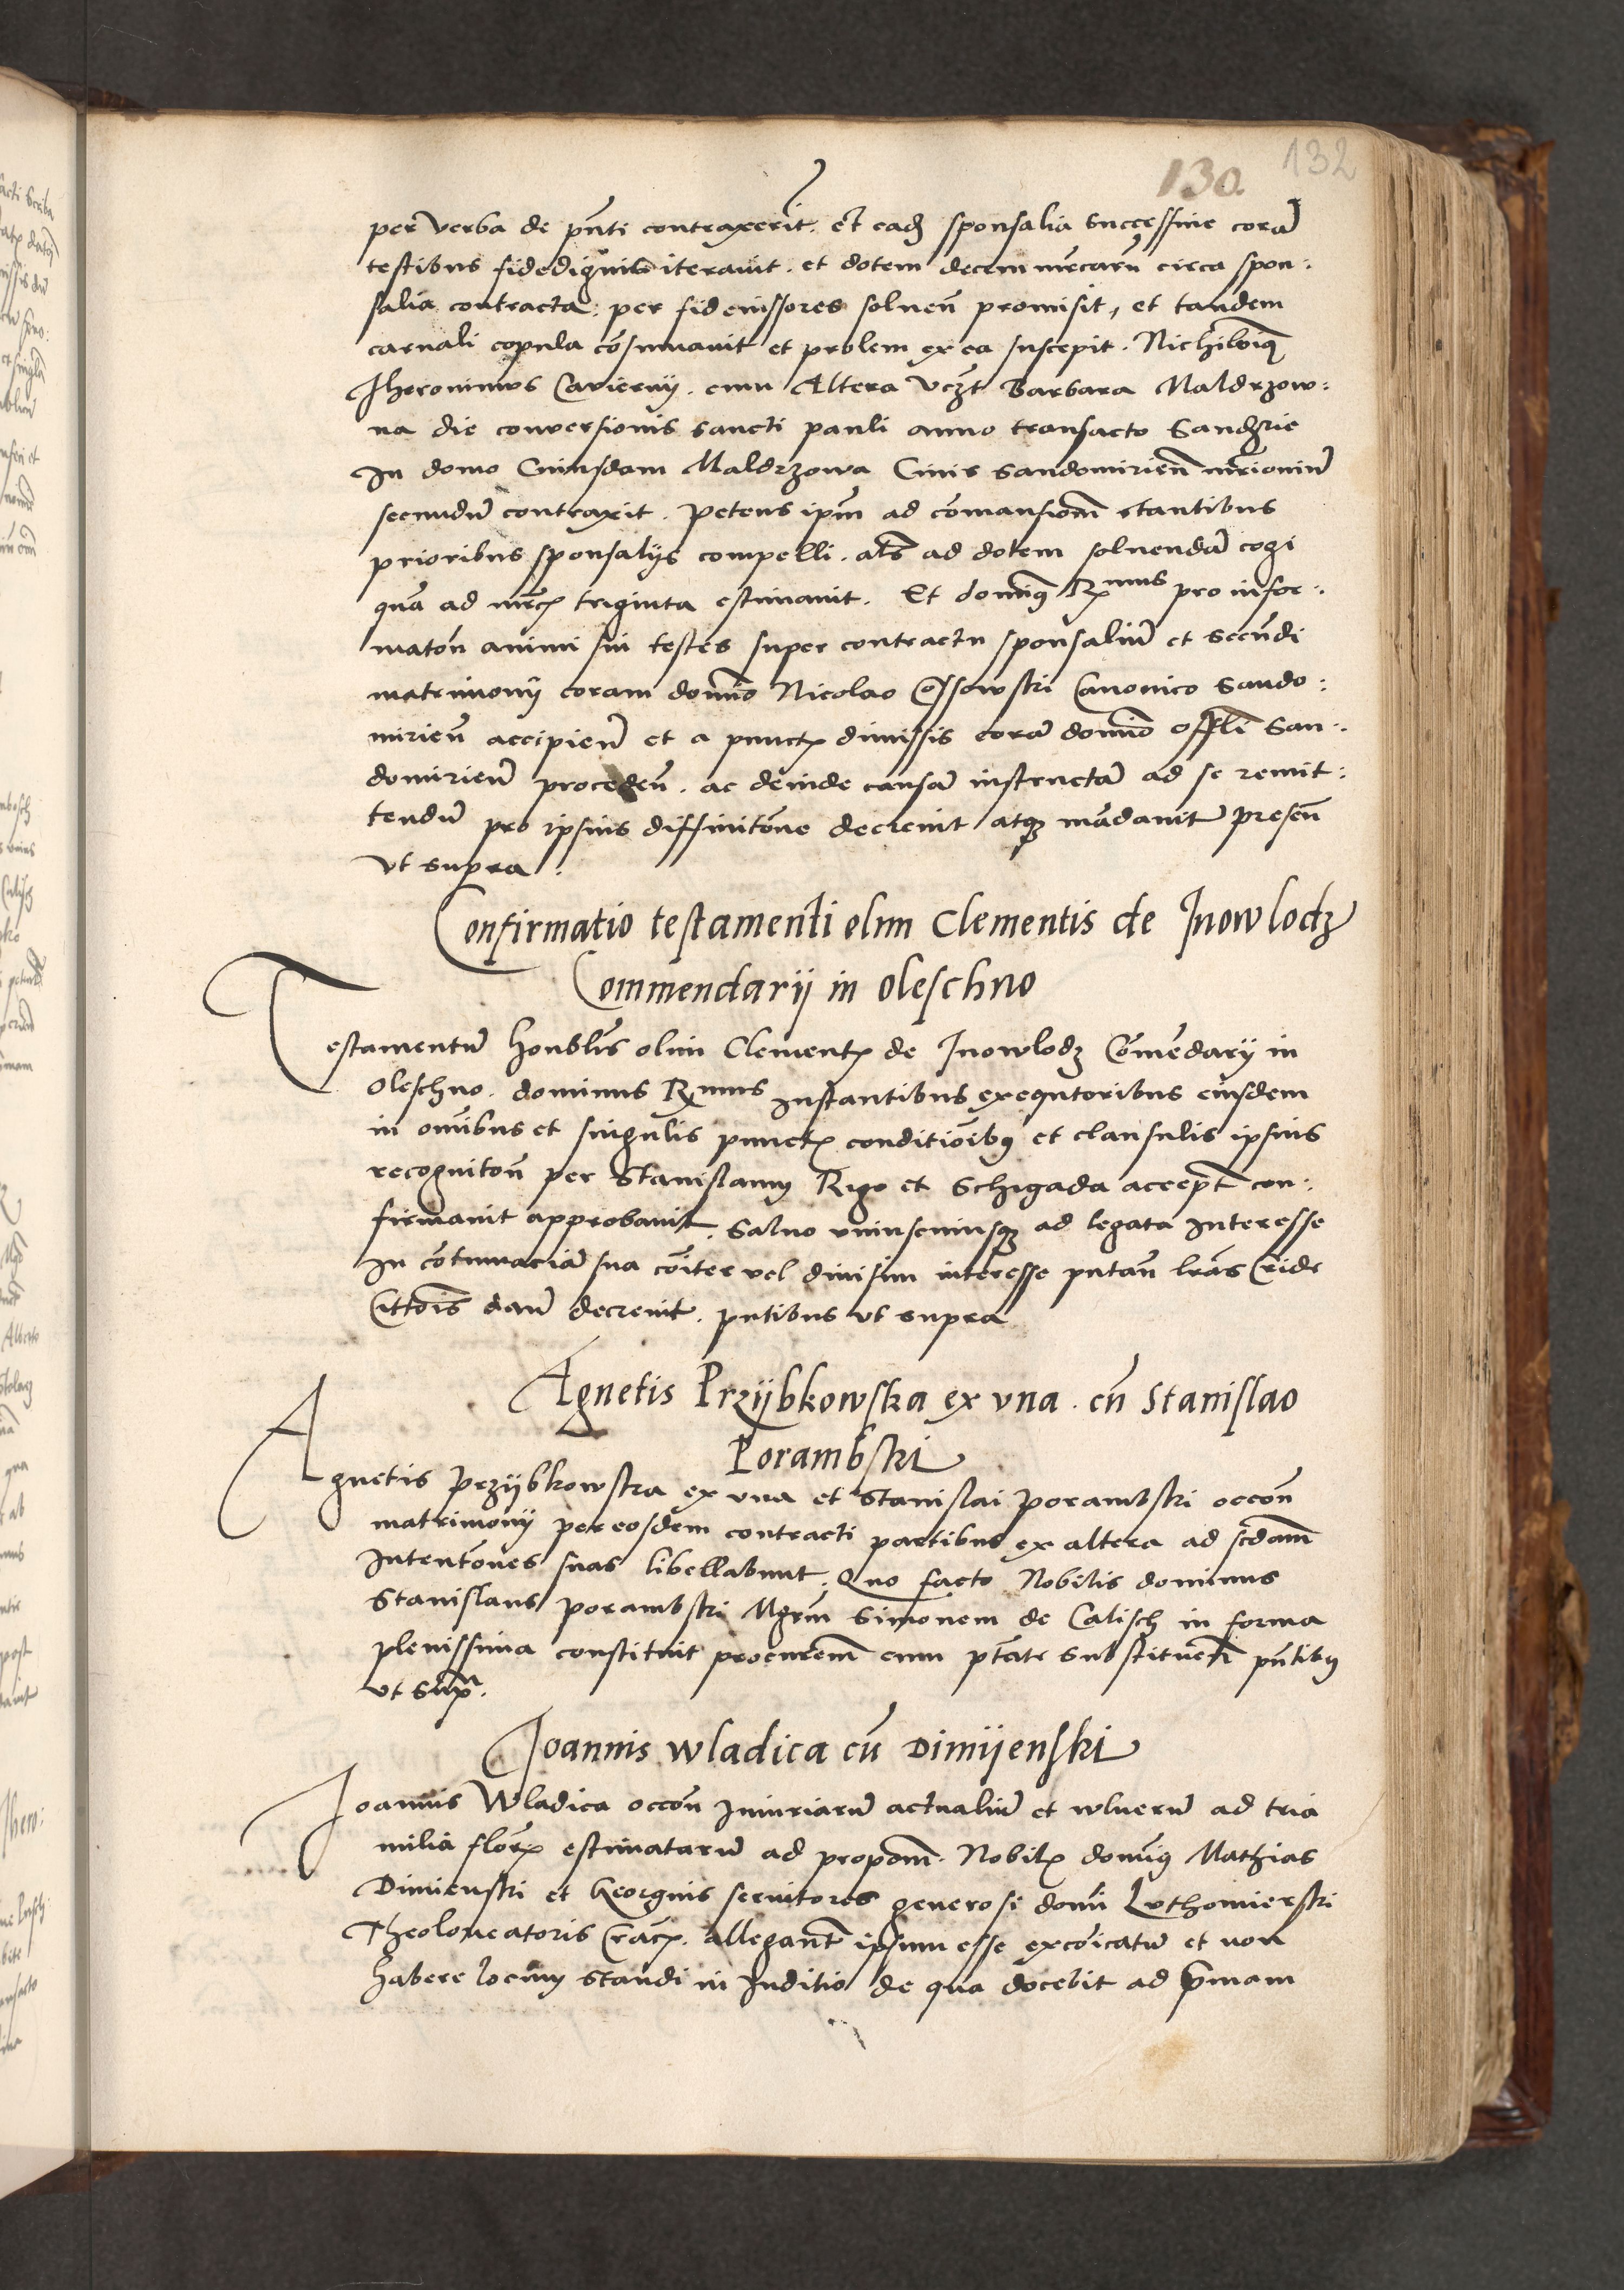 130 132
per verba de pñti contraxerit. et eadē sponsalia successiue corā
testibus fidedignis iterauit. et dotem decem mrcarū circa spon:
salia contracta. per fideiussores soluen̄ promisit, et tandem
carnali copula cōsumauit et prolem ex ea suscepit.
Jheronimus cum Altera vczt Barbara Maldrzow:
na die conversionis sancti pauli anno transacto Sandzrie
In domo Cuiusdam Maldrzowa Ciuis Sandomirien̄ mr̄ioniū
secundū contraxit. Petens ipm̄ ad cōmansionē stantibus
prioribus sponsalijs compelli. als̄ ad dotem soluendā cogi
quā ad mrcꝭ triginta estimauit. Et domīnꝰ Rmus pro infor:
maton̄ animi sui testes super contractu sponsaliū et secūdi
matrimonij coram domīo Nicolao Ossowski Canonico Sando:
mirien̄ accipien̄ et a punctꝭ dimissis corā domīo offli San:
domirien̄ proceden̄. ac deinde causā instructā ad se remit:
tendū pro ipsius diffinitōne decreuit atqꝫ mādauit presen̄
vt supra.
Confirmatio testamenti olim Clementis de Jnowlodz
Commendarij in Oleschno
Testamentū honblis̄ olim Clementꝭ de Jnowlodz Cōmēdarij in
Oleschno. dominus Rmus instantibus exequtoribus eiusdem
in omībus et singulis punctꝭ conditiōibꝰ et clausulis ipsius
recogniton̄ per Stanislaum Rigo et Schigada accept̄ con:
firmauit approbauit. Saluo vniuscuiusqꝫ ad legata Interesse
In cōtumaciā sua cōiter vel diuisim interesse putan̄ lrās Cride
Citтōis dan̄ decreuit. pntibus vt supra
Agnetis Przybkowska ex vna. cū Stanislao
Porambski
Agnetis Przybkowska ex vna et Stanislai Porambski occōn̄
matrimonij per eosdem contracti partibus ex altera ad scdam̄
Intentōnes suas libellabunt. Quo facto Nobilis dominus
Stanislaus Porambski Mgrm̄ Simonem de Calisch in forma
plenissima constituit procurem̄ cum ptāte substituen̄ pn̄tibꝰ
vt supra.
Joannis Wladica cū Dimijenski
Joannis Wladica occōn̄ Iniuriarū actualiū et wlnerū ad tria
milia florꝭ estimatarū ad propom̄. Nobilꝭ domīꝰ Mathias
Dimienski et Georgius seruitores generosi domī Luthomierski
Theoloneatoris Cracꝭ. allegant̄ ipsum esse excōicatū et non
habere locum standi in Juditio de qua docebit ad p̄mam